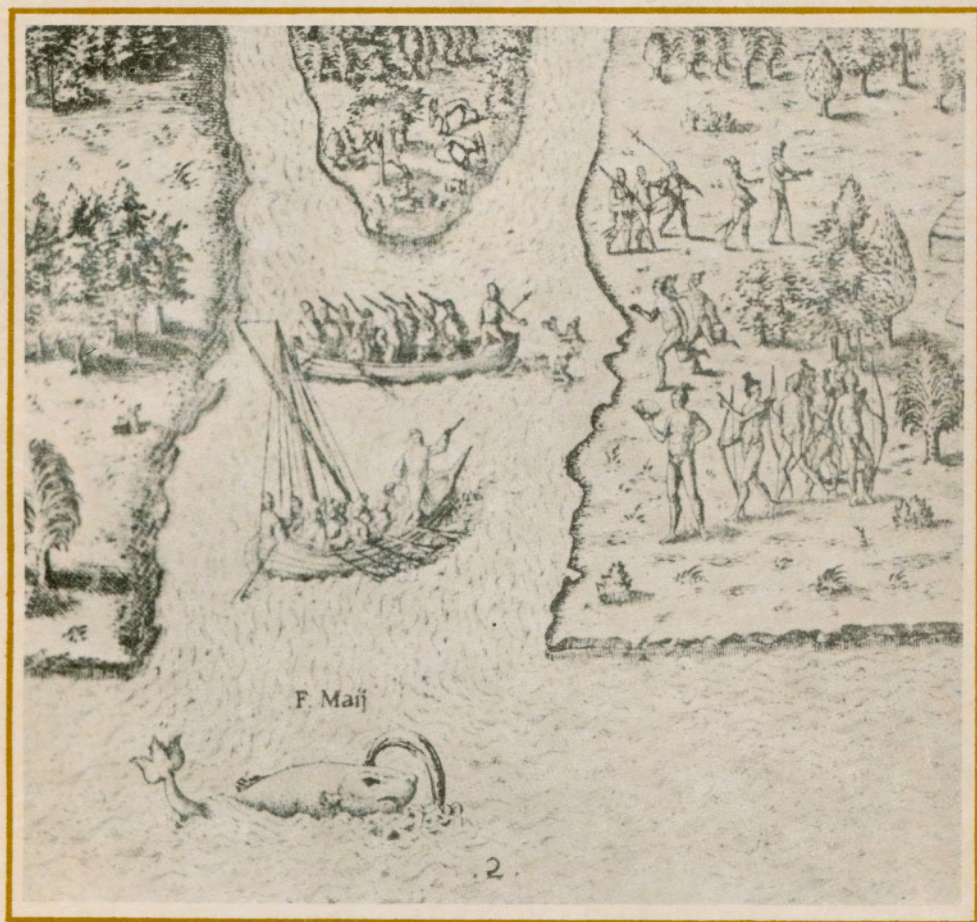 F. Maij
.2.